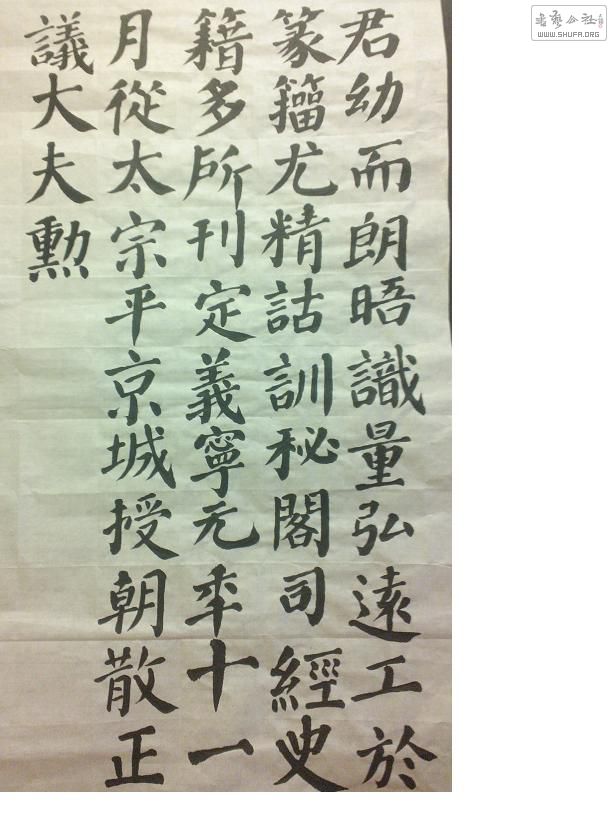 君幼而朗晤識量弘遠工於
篆籀尤精詁訓秘閣司經史
籍多所刊定義寧元年十一
月從太宗平京城授朝散正
議大夫勳
書藝公社
WWW.SHUFA.ORG